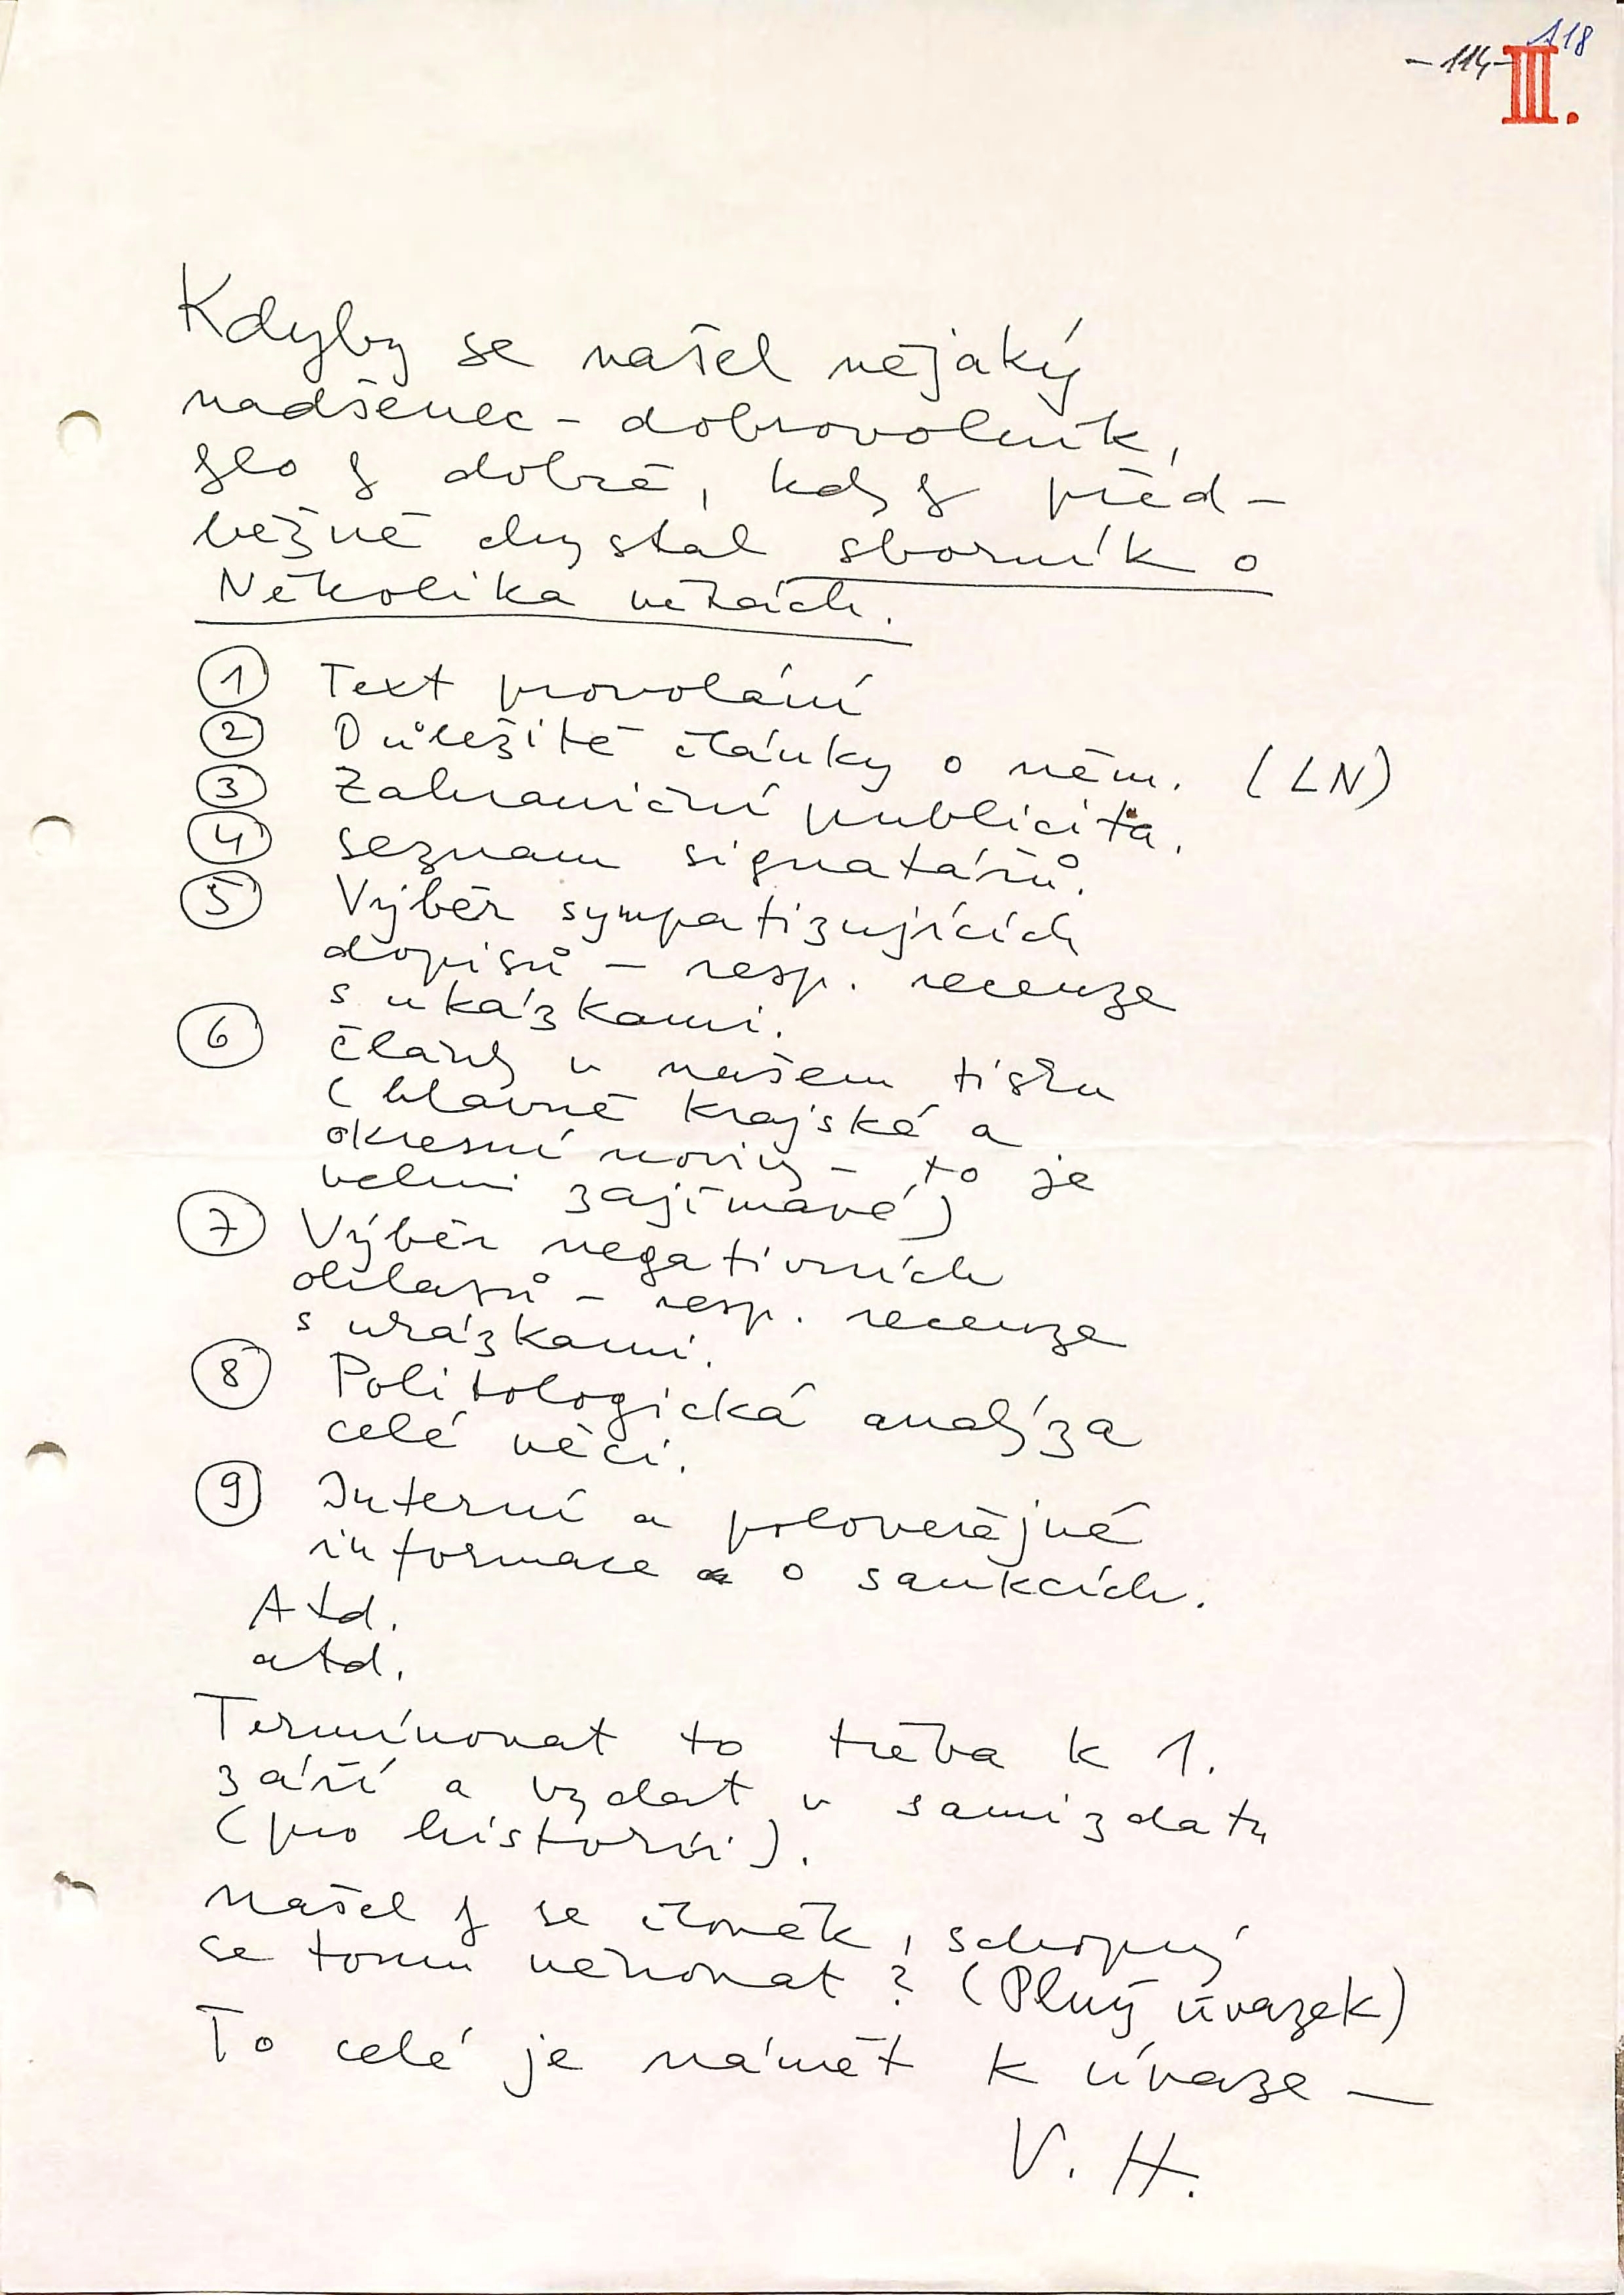 A18
-114-
III.
Kdyby se našel nějaký
nadšenec - dobrovolník,
šlo by dobré, kdyby před-
běžně chystal sborník o
Několika větách.
1 Text provolání
2 Důležité články o něm. (LN)
3 Zahraniční publicita.
4 seznam signatářů.
5 Výběr sympatizujících
dopisů - resp. recenze
s ukázkami.
6 články v našem tisku
(hlavně krajské a
okresní noviny - to je
velmi zajímavé)
7 Výběr negativních
ohlasů - resp. recenze
s ukázkami.
8 Politologická analýza
celé věci.
9 Interní a poloveřejné
informace o sankcích.
Atd.
atd.
Termínovat to třeba k 1.
září a vydat v samizdatu
(pro historii).
Našel by se člověk, schopný
se tomu věnovat? (Plný úvazek)
To celé je námět k úvaze -
V. H.